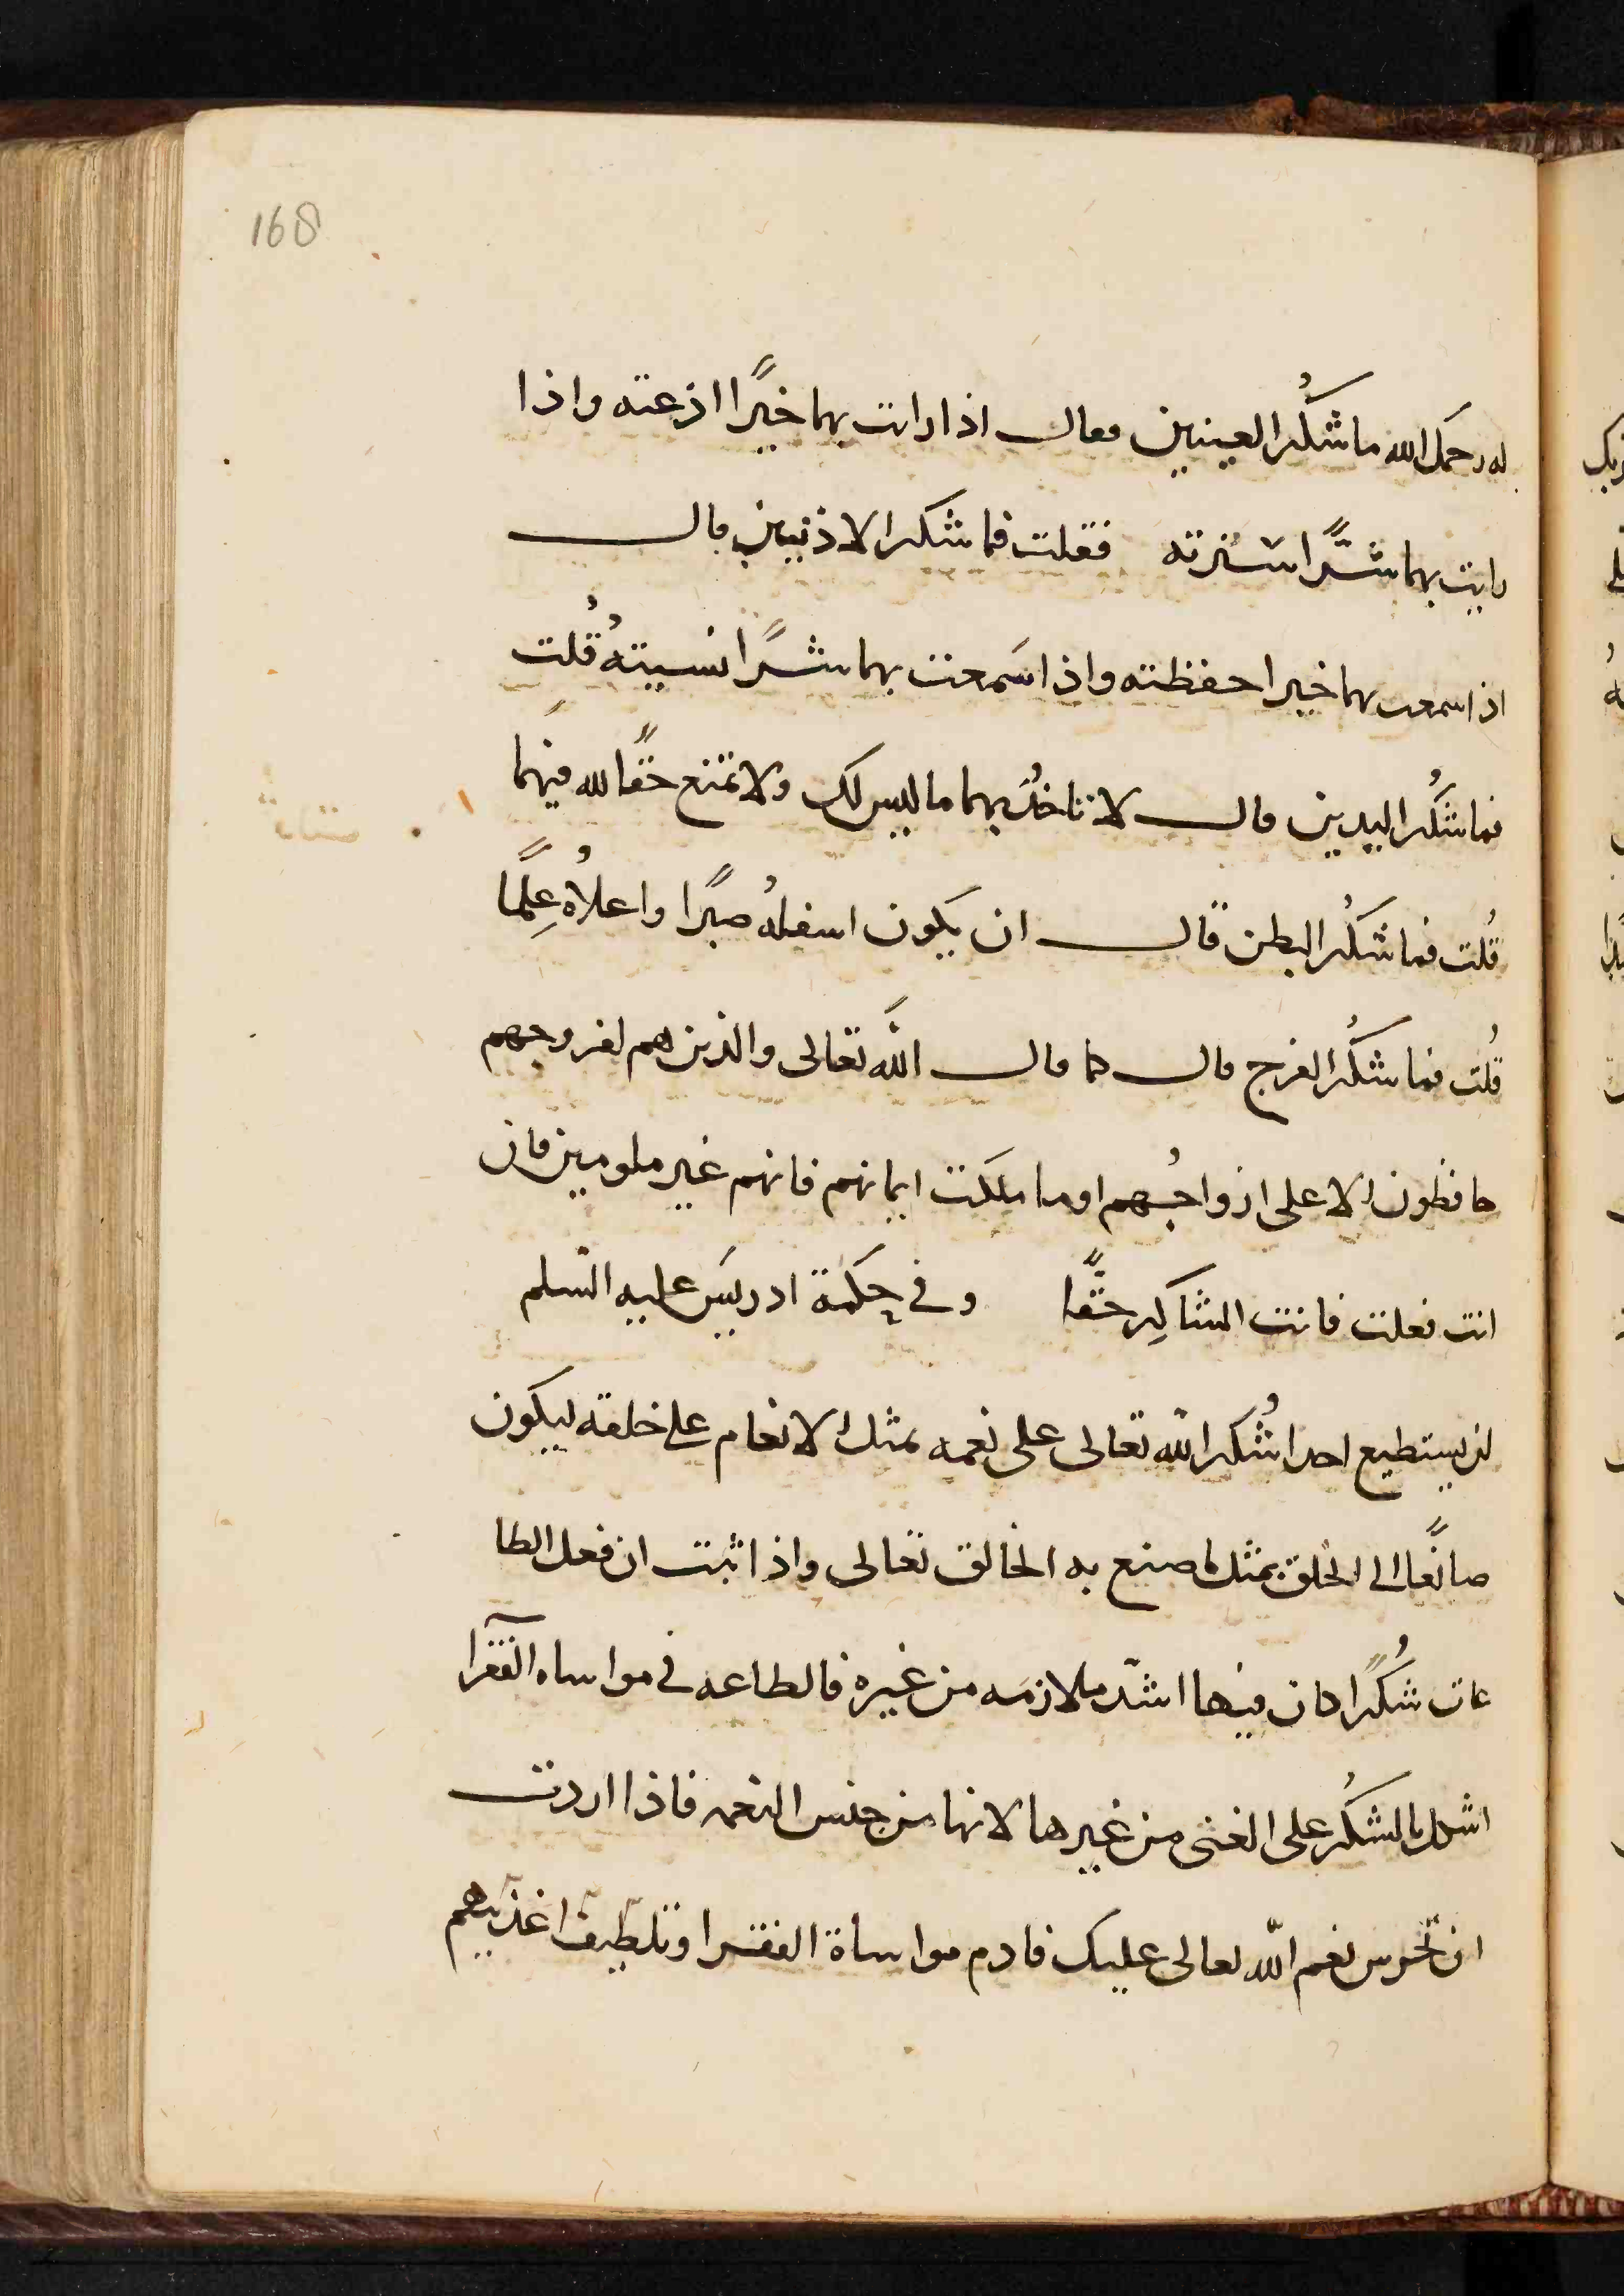 168
له رحمك الله ما شُكُر العينين فقال اذا رايت بهما خيرًا اذعته واذا
رايت بهما شرًّا سترته فقلت فما شكر الاذنين قال
اذا سمعت بهما خيرا حفظته واذا سَمعت بهما شرًا نسيتهُ قُلت
فما شكُر اليدين قال لا تاخُذ بهما ما ليس لك ولا تمنع حقًا لله فيهما
قُلت فما شكُر البطن قال ان يكون اسفلهُ صبرًا واعلاهُ عِلمًا
قُلت فما شكُر الفرج قال كما قال الله تعالى والذين هم لفروجهم
حافظون الا على ازواجُهم او ما ملكت ايمانهم فانهم غير ملومين فان
انت فعلت فانت الشاكِر حقًّا وفي حِكمة ادريسَ عليه السّلم
لن يستطيع احدا شُكر الله تعالى على نعمه بمثل الانعام على خلقه ليكون
صانعًا الى الخلق بمثل ما صنع به الخالق تعالى واذا ثبت ان فعل الطا
عات شُكُرًا كان فيها اشدّ ملازمَه من غيره فالطاعه في مواساه الفقرآ
اشكل بالشكُر على الغنى من غيرها لانها من جنس النعمه فاذا اردت
ان تحرس نعم الله تعالى عليك فادم مواساة الفقرا وتلطيف اغذيتهم